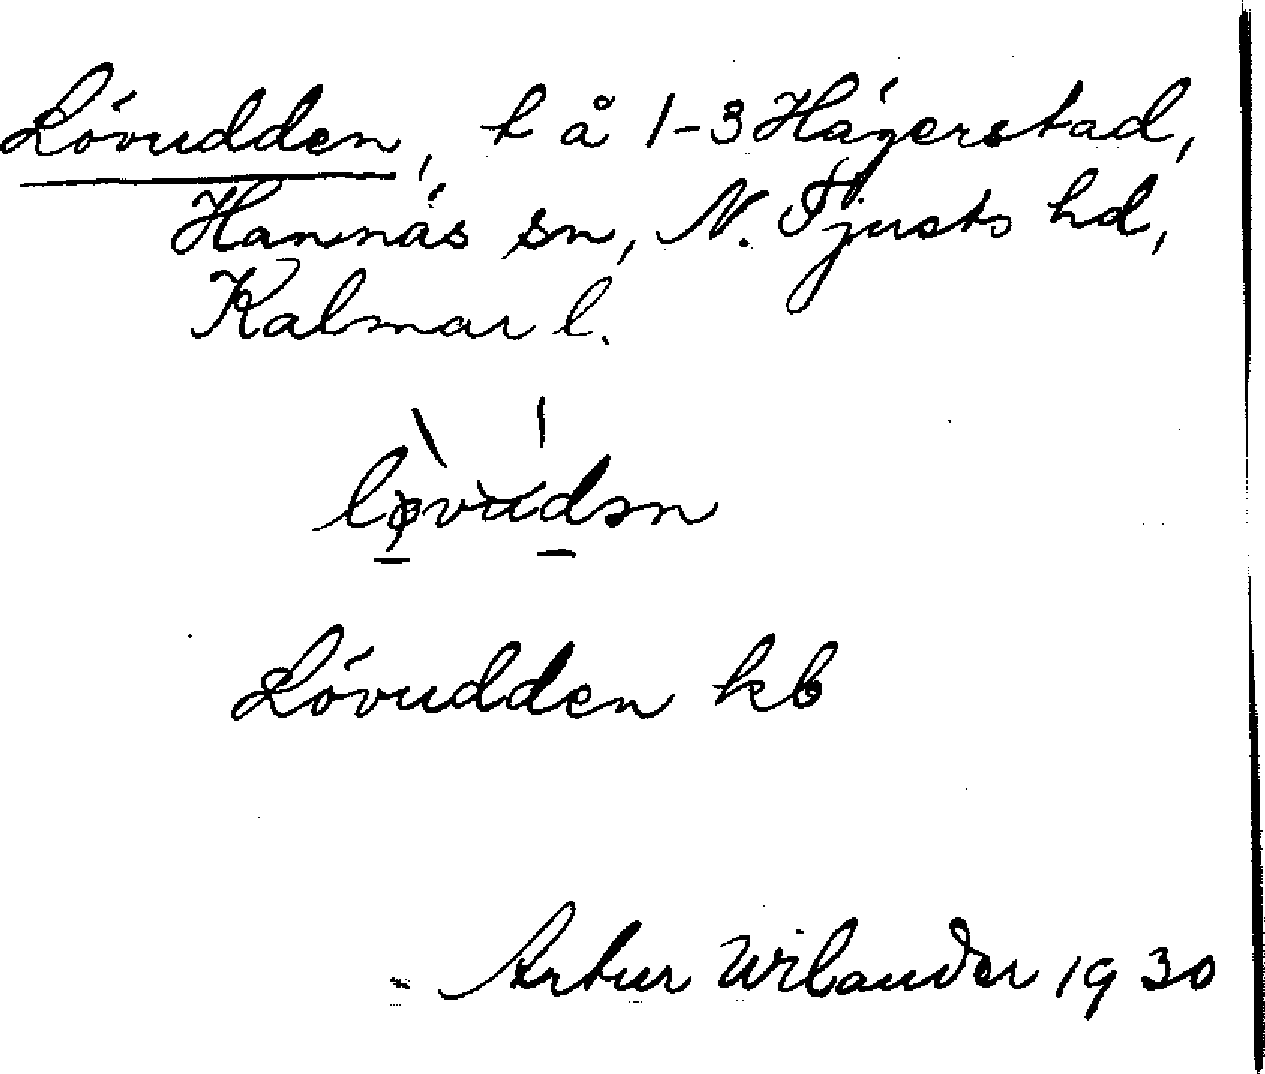 Lövudden, t å 1-3 Hägerstad,
Hannäs sn, N. Tjusts hd,
Kalmar l.
Lövudden kb
Artur Wilander 1930